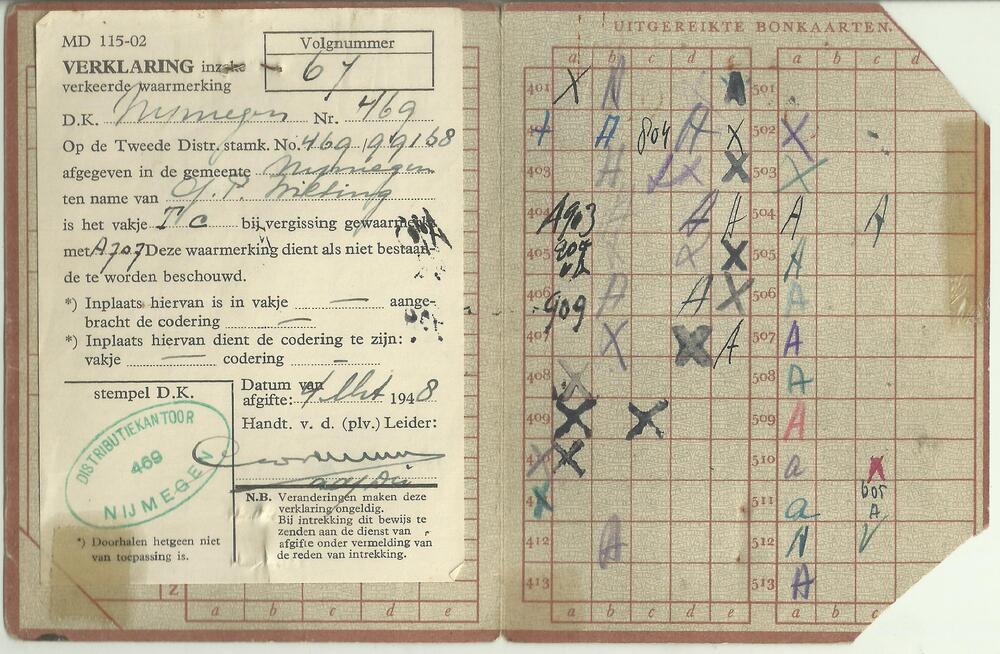 MD 115-02
Volgnummer
67
VERKLARING inzake
verkeerde waarmerking
D.K. Nijmegen Nr. 469
Op de Tweede Distr. stamk. No. 469 099168
afgegeven in de gemeente Nijmegen
ten name van
is het vakje T c bij vergissing gewaarmerkt
met A707 Deze waarmerking dient als niet bestaan-
de te worden beschouwd.
*) Inplaats hiervan is in vakje — aange-
bracht de codering —
*) Inplaats hiervan dient de codering te zijn:
vakje — codering —
stempel D.K.
DISTRIBUTIEKANTOOR
469
NIJMEGEN
Datum van
afgifte: 4 1948
Handt. v. d. (plv.) Leider:
N.B. Veranderingen maken deze
verklaring ongeldig.
Bij intrekking dit bewijs te
zenden aan de dienst van
afgifte onder vermelding van
de reden van intrekking.
*) Doorhalen hetgeen niet
van toepassing is.
Z
a b c d e
UITGEREIKTE BONKAARTEN.
a b c d e a b c d
401 X N A 501
+ A 804 A X 502 X
403 H X X 503 X
404 A903 A A 504 A A
405 X X 505 A
406 909 A A X 506 A
407 X X A 507 A
408 508 A
409 X X 509 A
X X 510 a X
X 511 a 605 A
412 A 512 A V
413 513 A
a b c d e a b c